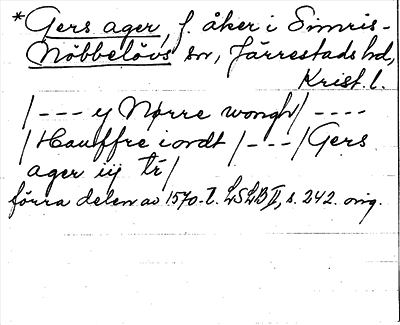 * Gers ager, f. åker i Simris-
Nöbbelövs sn, Järrestads hd,
Krist. l.
/--- ij Nørre wongh/ ----
/Hauffre iordt /---/Gers
ager iij tr/
förra delen av 1570-t. LSLB II, s. 242. orig.